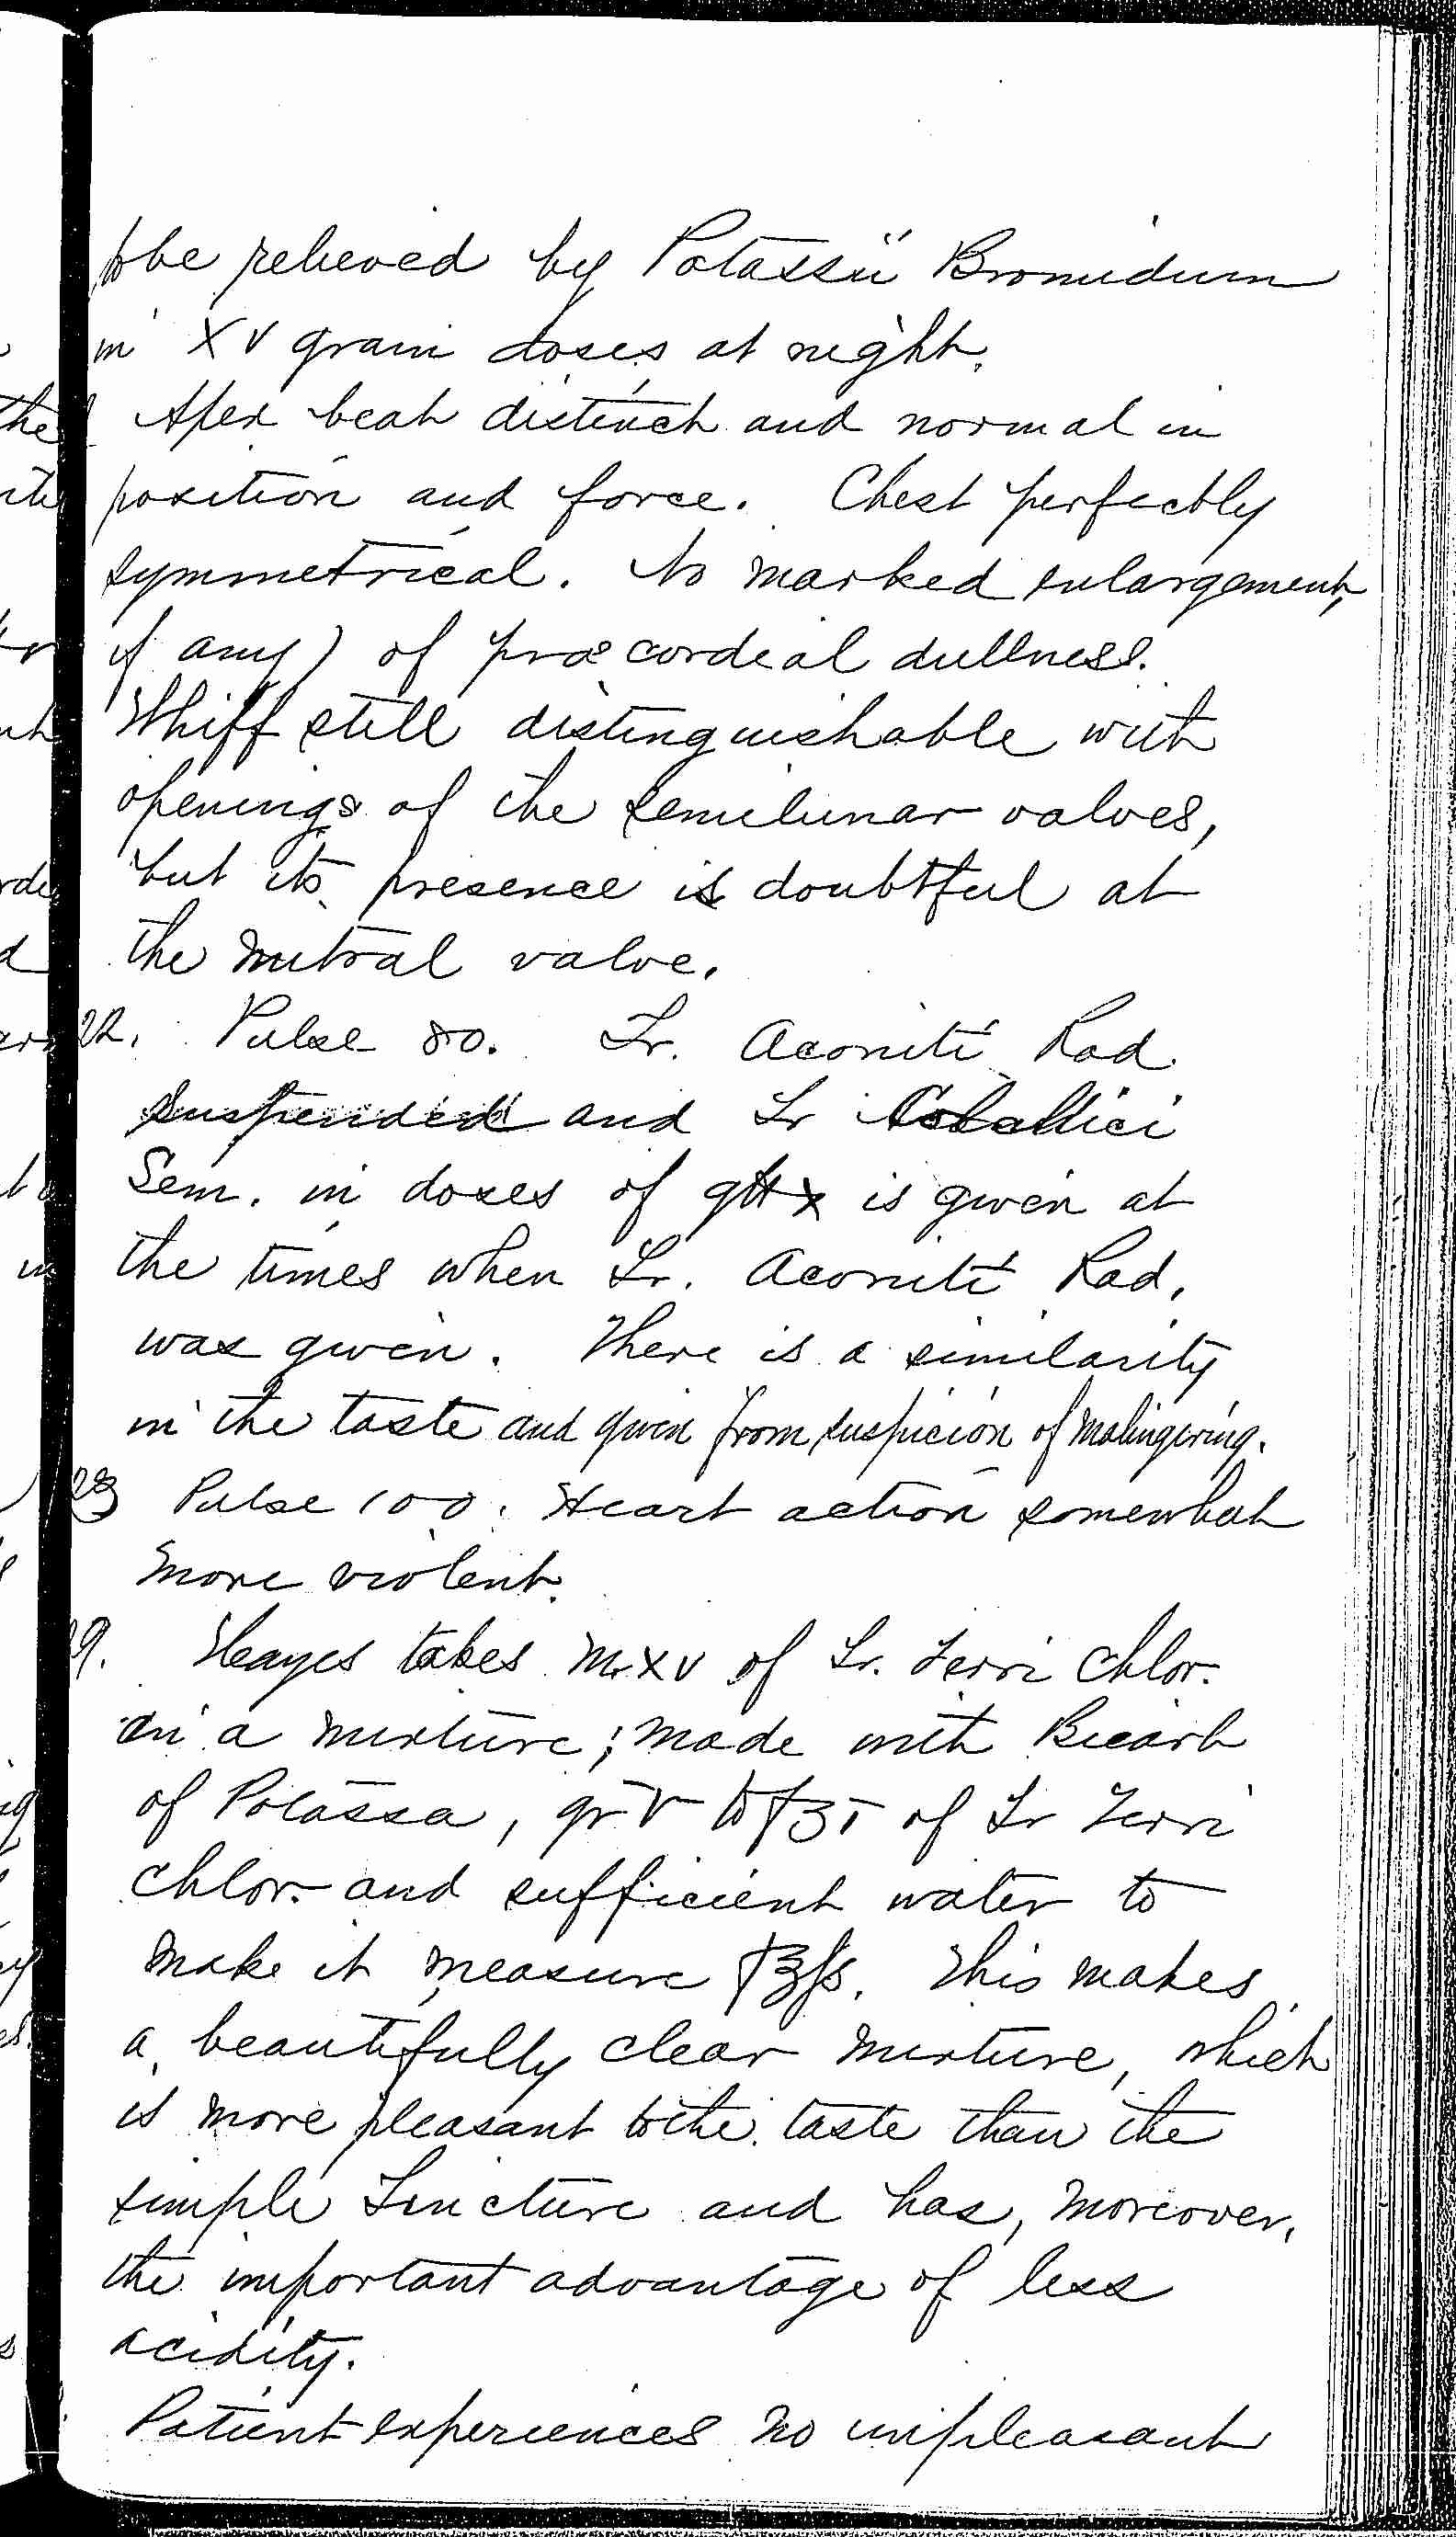 to be relieved by Potassii Bromidum
in XV grain doses at night.
Apex beat distinct and normal in
position and force. Chest perfectly
symmetrical. No marked enlargement,
if any) of præcordeal dullness.
Whiff still distinguishable with
openings of the semilunar valves,
but its presence is doubtful at
the mitral valve.
22. Pulse 80. Tr. Aconiti Rad.
suspended and Tr
Sem. in doses of gtt x is given at
the times when Tr. Aconiti Rad,
was given. There is a similarity
in the taste and given from suspicion of malingering.
23 Pulse 100. Heart action somewhat
more violent.
9. Hayes takes m. xv of Tr. Ferri Chlor.
in a mixture; made with Bicarb
of Potassa, gr v to fʒi of Tr Ferri
Chlor. and sufficient water to
make it measure f℥ss. This makes
a beautifully clear mixture, which
is more pleasant to the taste than the
simple Tincture and has, moreover,
the important advantage of less
acidity.
Patient experiences no unpleasant